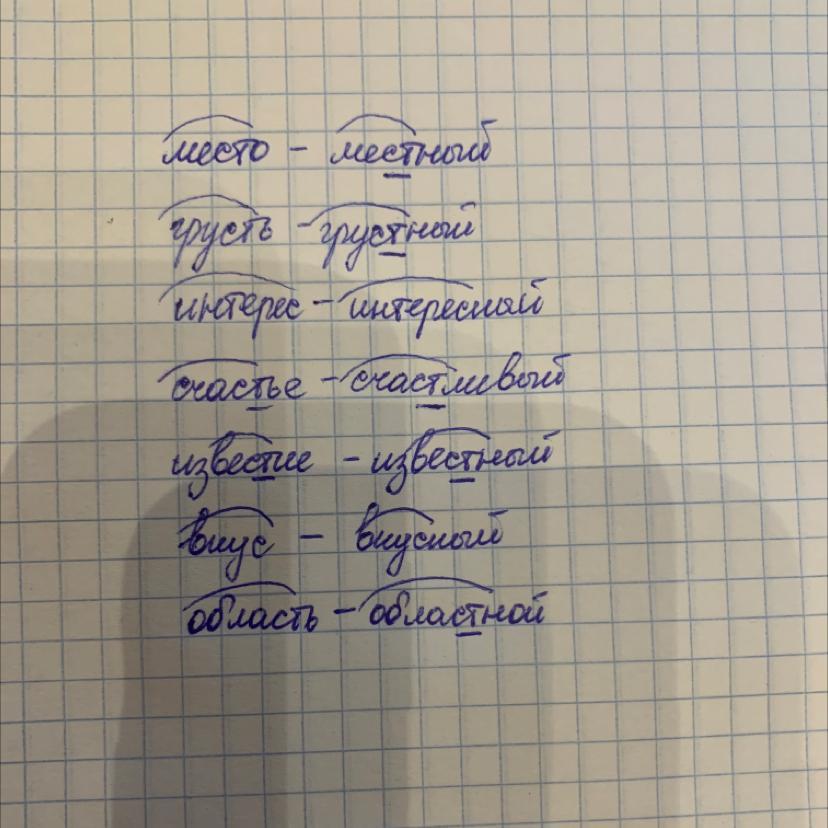 место – местный
грусть – грустный
интерес – интересный
счастье – счастливый
известие – известный
вкус – вкусный
область – областной